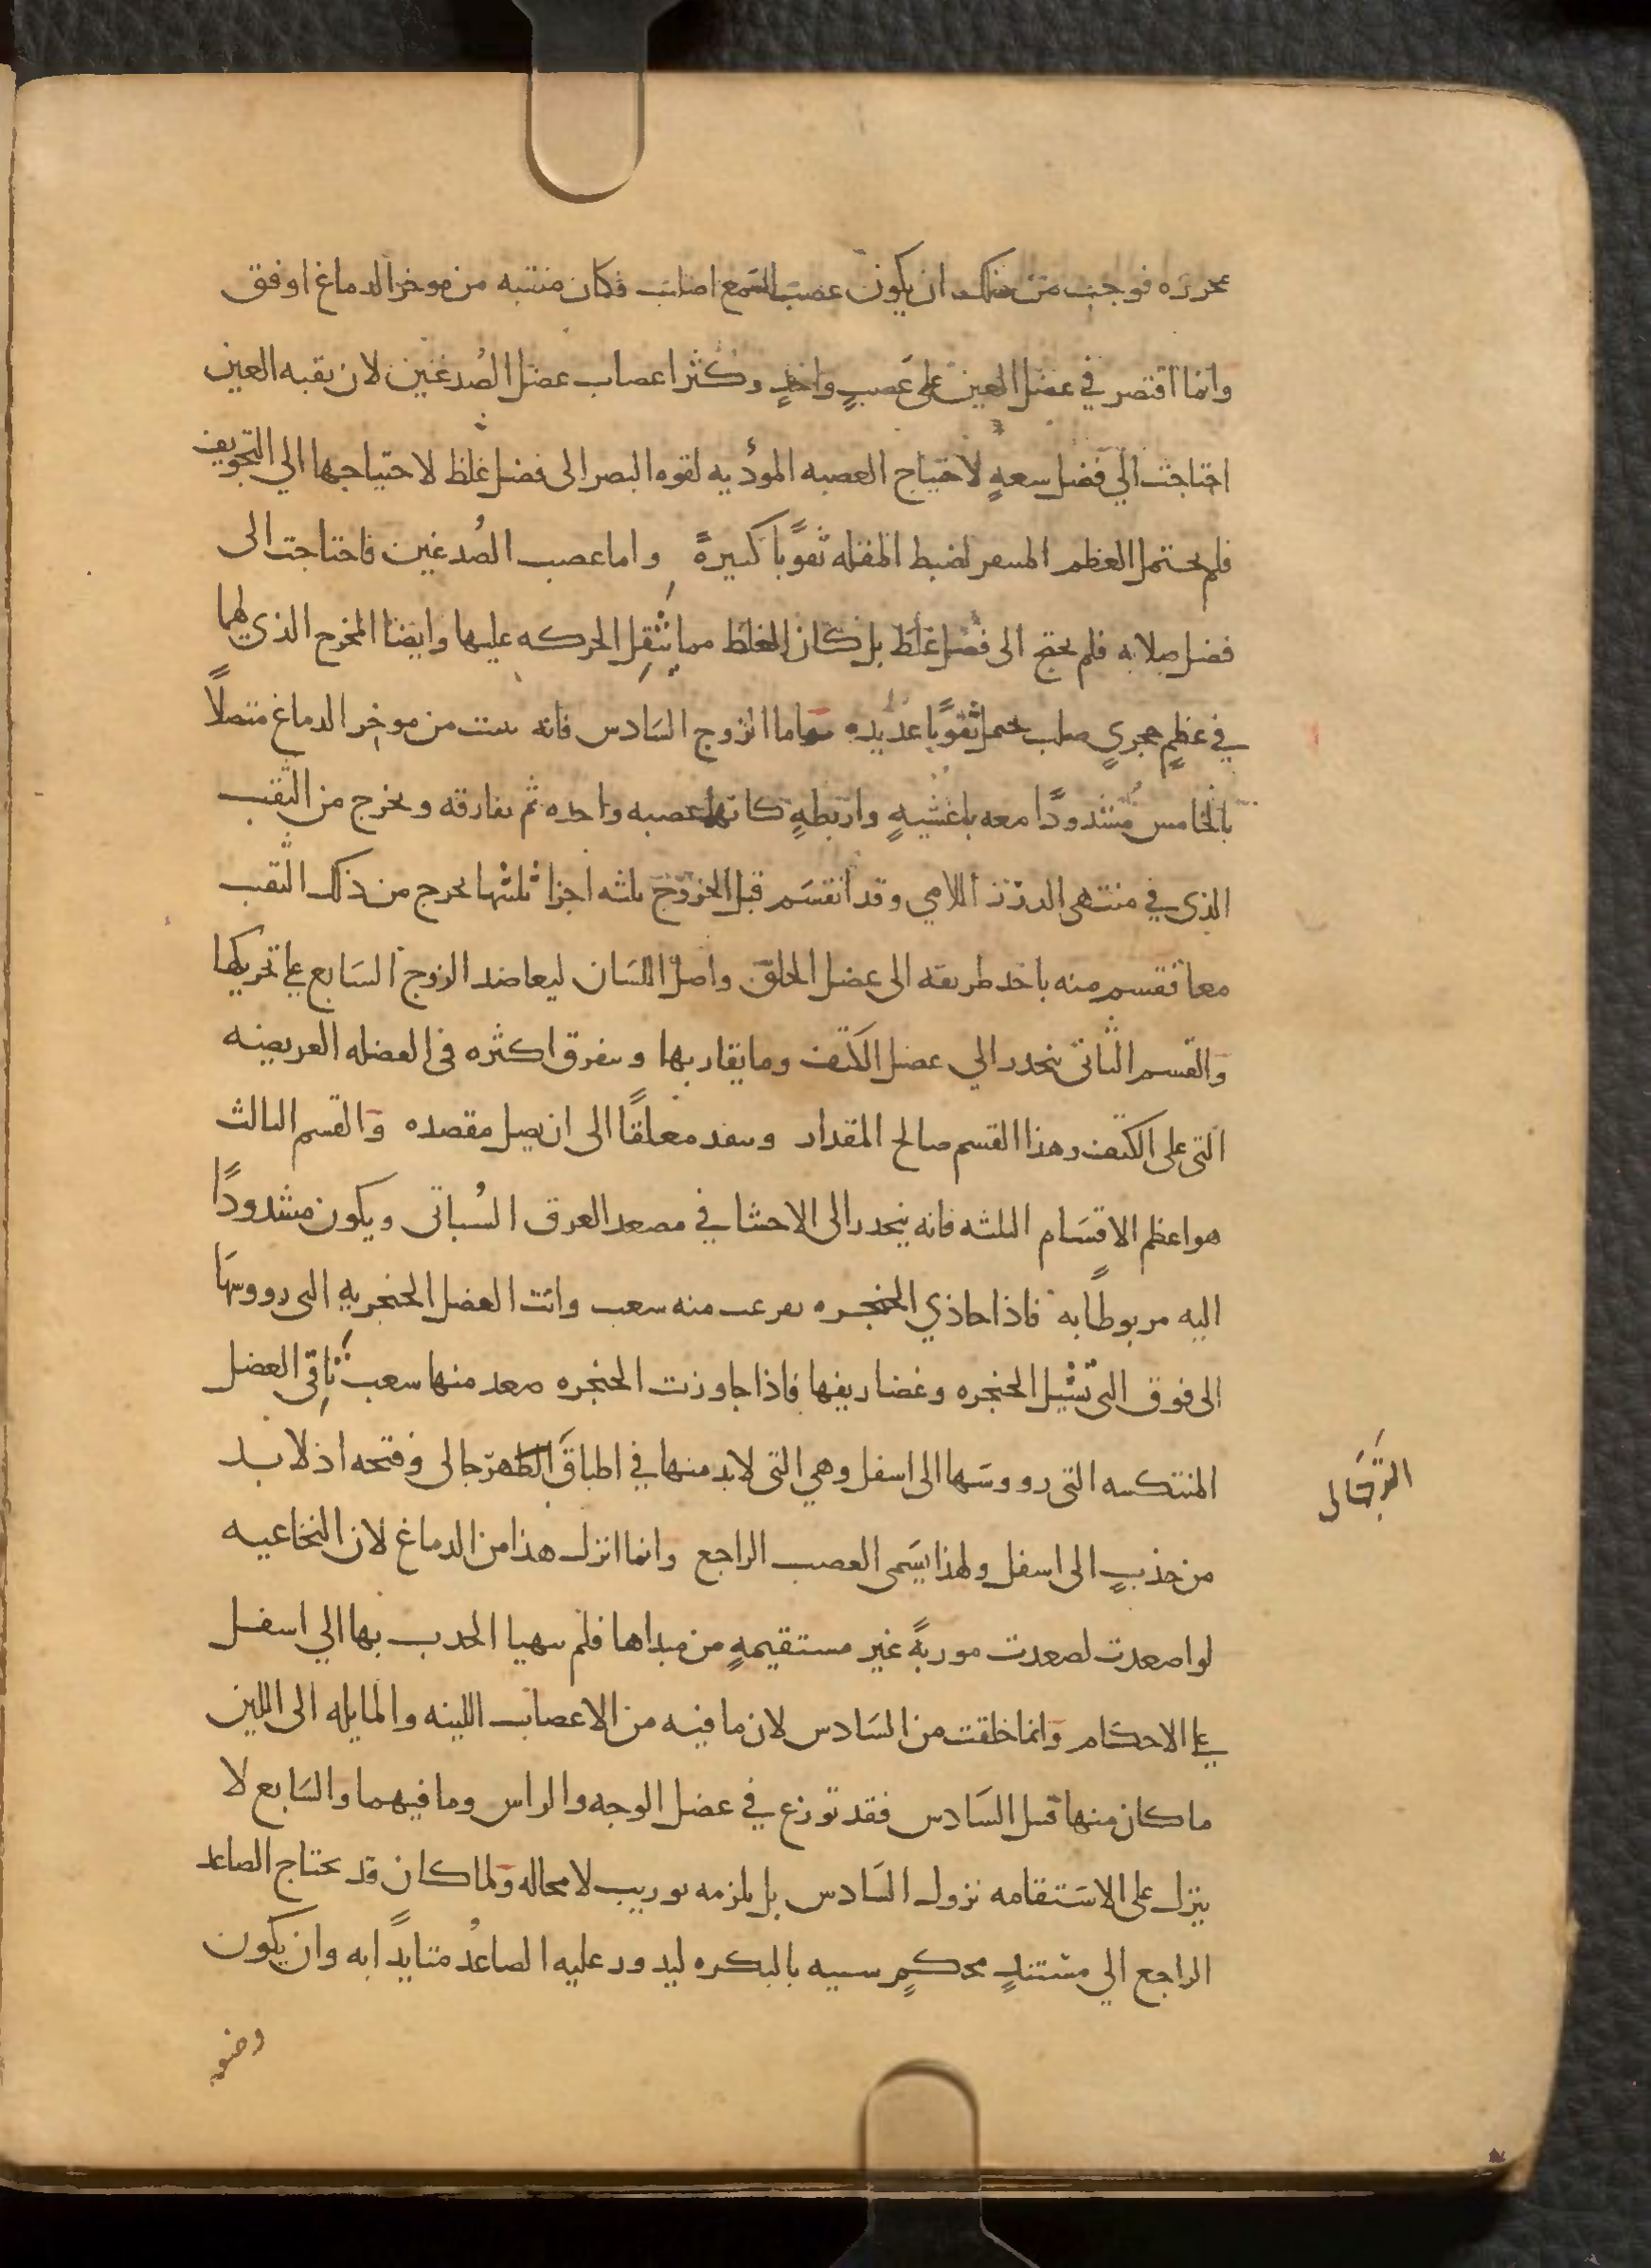 محرزه فوجب من ذلك ان يكون عصب السمع اصلب فكان منبته من موخر الدماغ اوفق
وانما اقتصر في عضل العين على عصبٍ واحدٍ وكثر اعصاب عضل الصُدغين لان ثقبه العين
احتاجت الي فضل سعهٍ لاحتياج العصبه المودٔيه لقوه البصر الى فضل غلظ لاحتياجها الي التجويف
فلم يحتمل العظم المسعر لضبط المقله ثقوبًا كثيرهً واما عصب الصُدغين فاحتاجت الى
فضل صلابه فلم يحتج الى فضل غلظ بل كان الغلظ مما يثقل الحركه عليها وايضا المخرج الذي لهما
في عظمٍ حجريٍ صلب يحتمل ثقوبًا عديده واما الزوج السَادس فانه ينبت من موخر الدماغ متصلاً
بالخامس مُشدودًا معه باغشيهٍ واربطهٍ كانهما عصبه واحده ثم يفارقه ويخرج من الثقب
الذي في منتهى الدرز اللامي وقد انقسَم قبل الخروج ثلثه اجزا ثلثتها يخرج من ذلك الثقب
معا فقسم منه ياخذ طريقه الى عضل الحلق واصل اللسَان ليعاضد الزوج السَابع على تحريكها
وَالقسم الثاني ينحدر الي عضل الكتف وما يقاربها ويتفرق اكثره في العضله العريضه
التي على الكتف وهذا القسم صالح المقدار وينفد معلقًا الى ان يصل مقصده وَالقسم الثالث
هو اعظم الاقسَام الثلثه فانه ينحدر الى الاحشا في مصعد العرق السُباتى ويكون مشدودًا
اليه مربوطًا به فاذا حاذي الحنجره تفرعت منه شعب واتت العضل الحنجريه التي رووسَها
الى فوق التي تشيل الحنجره وغضاريفها فاذا جاوزت الحنجره صعد منها شعب تاتي العضل
المنتكسه التي رووسَها الى اسفل وهي التي لابد منها في اطباق الطهرجالى وفتحه اذ لا بد
الترجَالى
من جذبٍ الى اسفل ولهذا يسَمى العصب الراجع وانما انزل هذا من الدماغ لان النخاعيه
لو اصعدت لصعدت موربهً غير مستقيمهٍ من مبداها فلم يتهيا الجذب بها الي اسفل
على الاحكام وَانما خلقت من السَادس لان ما فيه من الاعصاب اللينه والمايله الى اللين
ما كان منها قبل السَادس فقد توزع في عضل الوجه والراس وما فيهما والسَابع لا
ينزل على الاسَتقامه نزول السَادس بل يلزمه توريب لا محاله وَلما كان قد يحتاج الصاعد
الراجع الي مستندٍ محكمٍ شبيه بالبكره ليدور عليه الصاعدُ متايدًا به وان يكون
وضعه